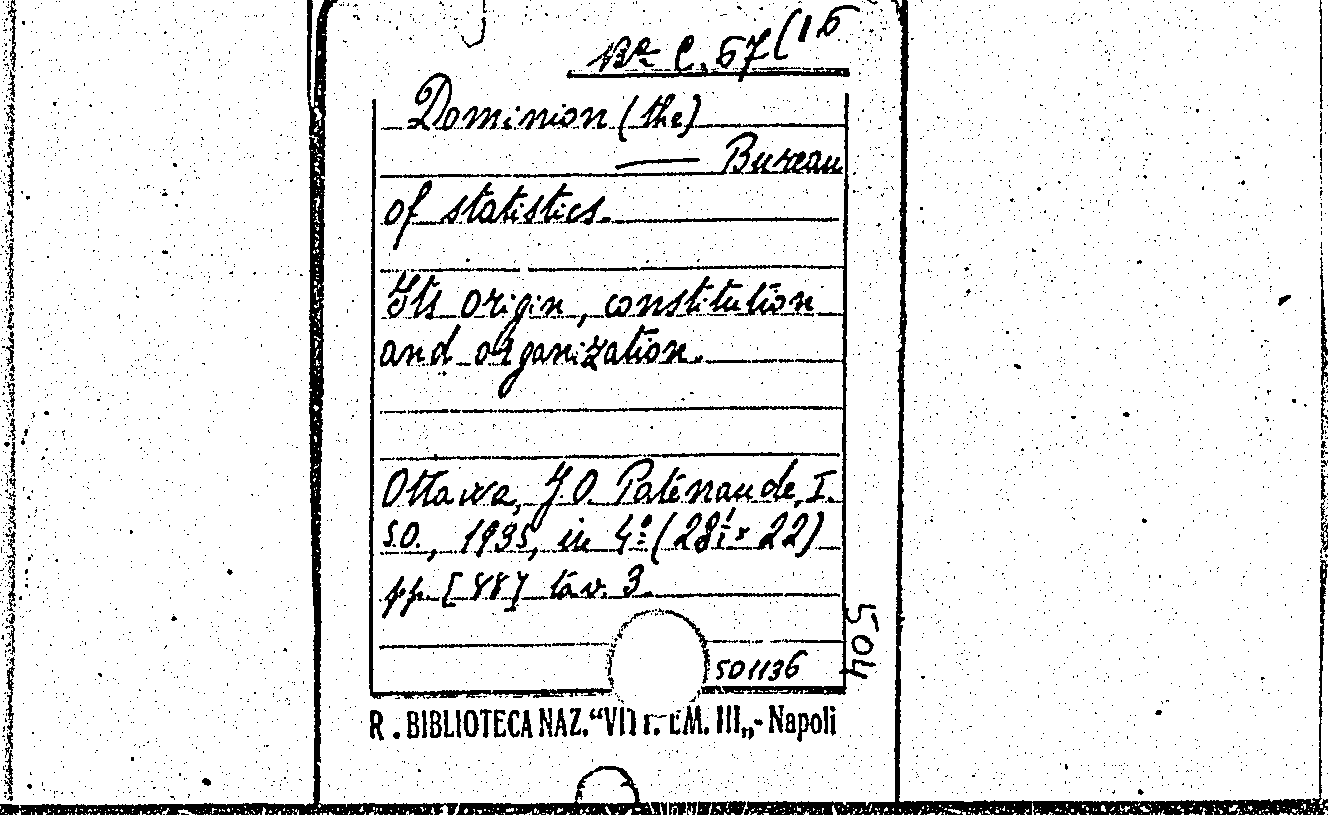 Bª C. 57(15
Dominion (the)
—— Bureau
of statistics.
Its origin, constitution
and organization.
Ottawa, J.O. Patenaude, I.
S.O., 1935, in 4º (28 x 22)
pp. [88] tav. 3.
501136
504
R. BIBLIOTECA NAZ. “VITT. EM. III„ - Napoli